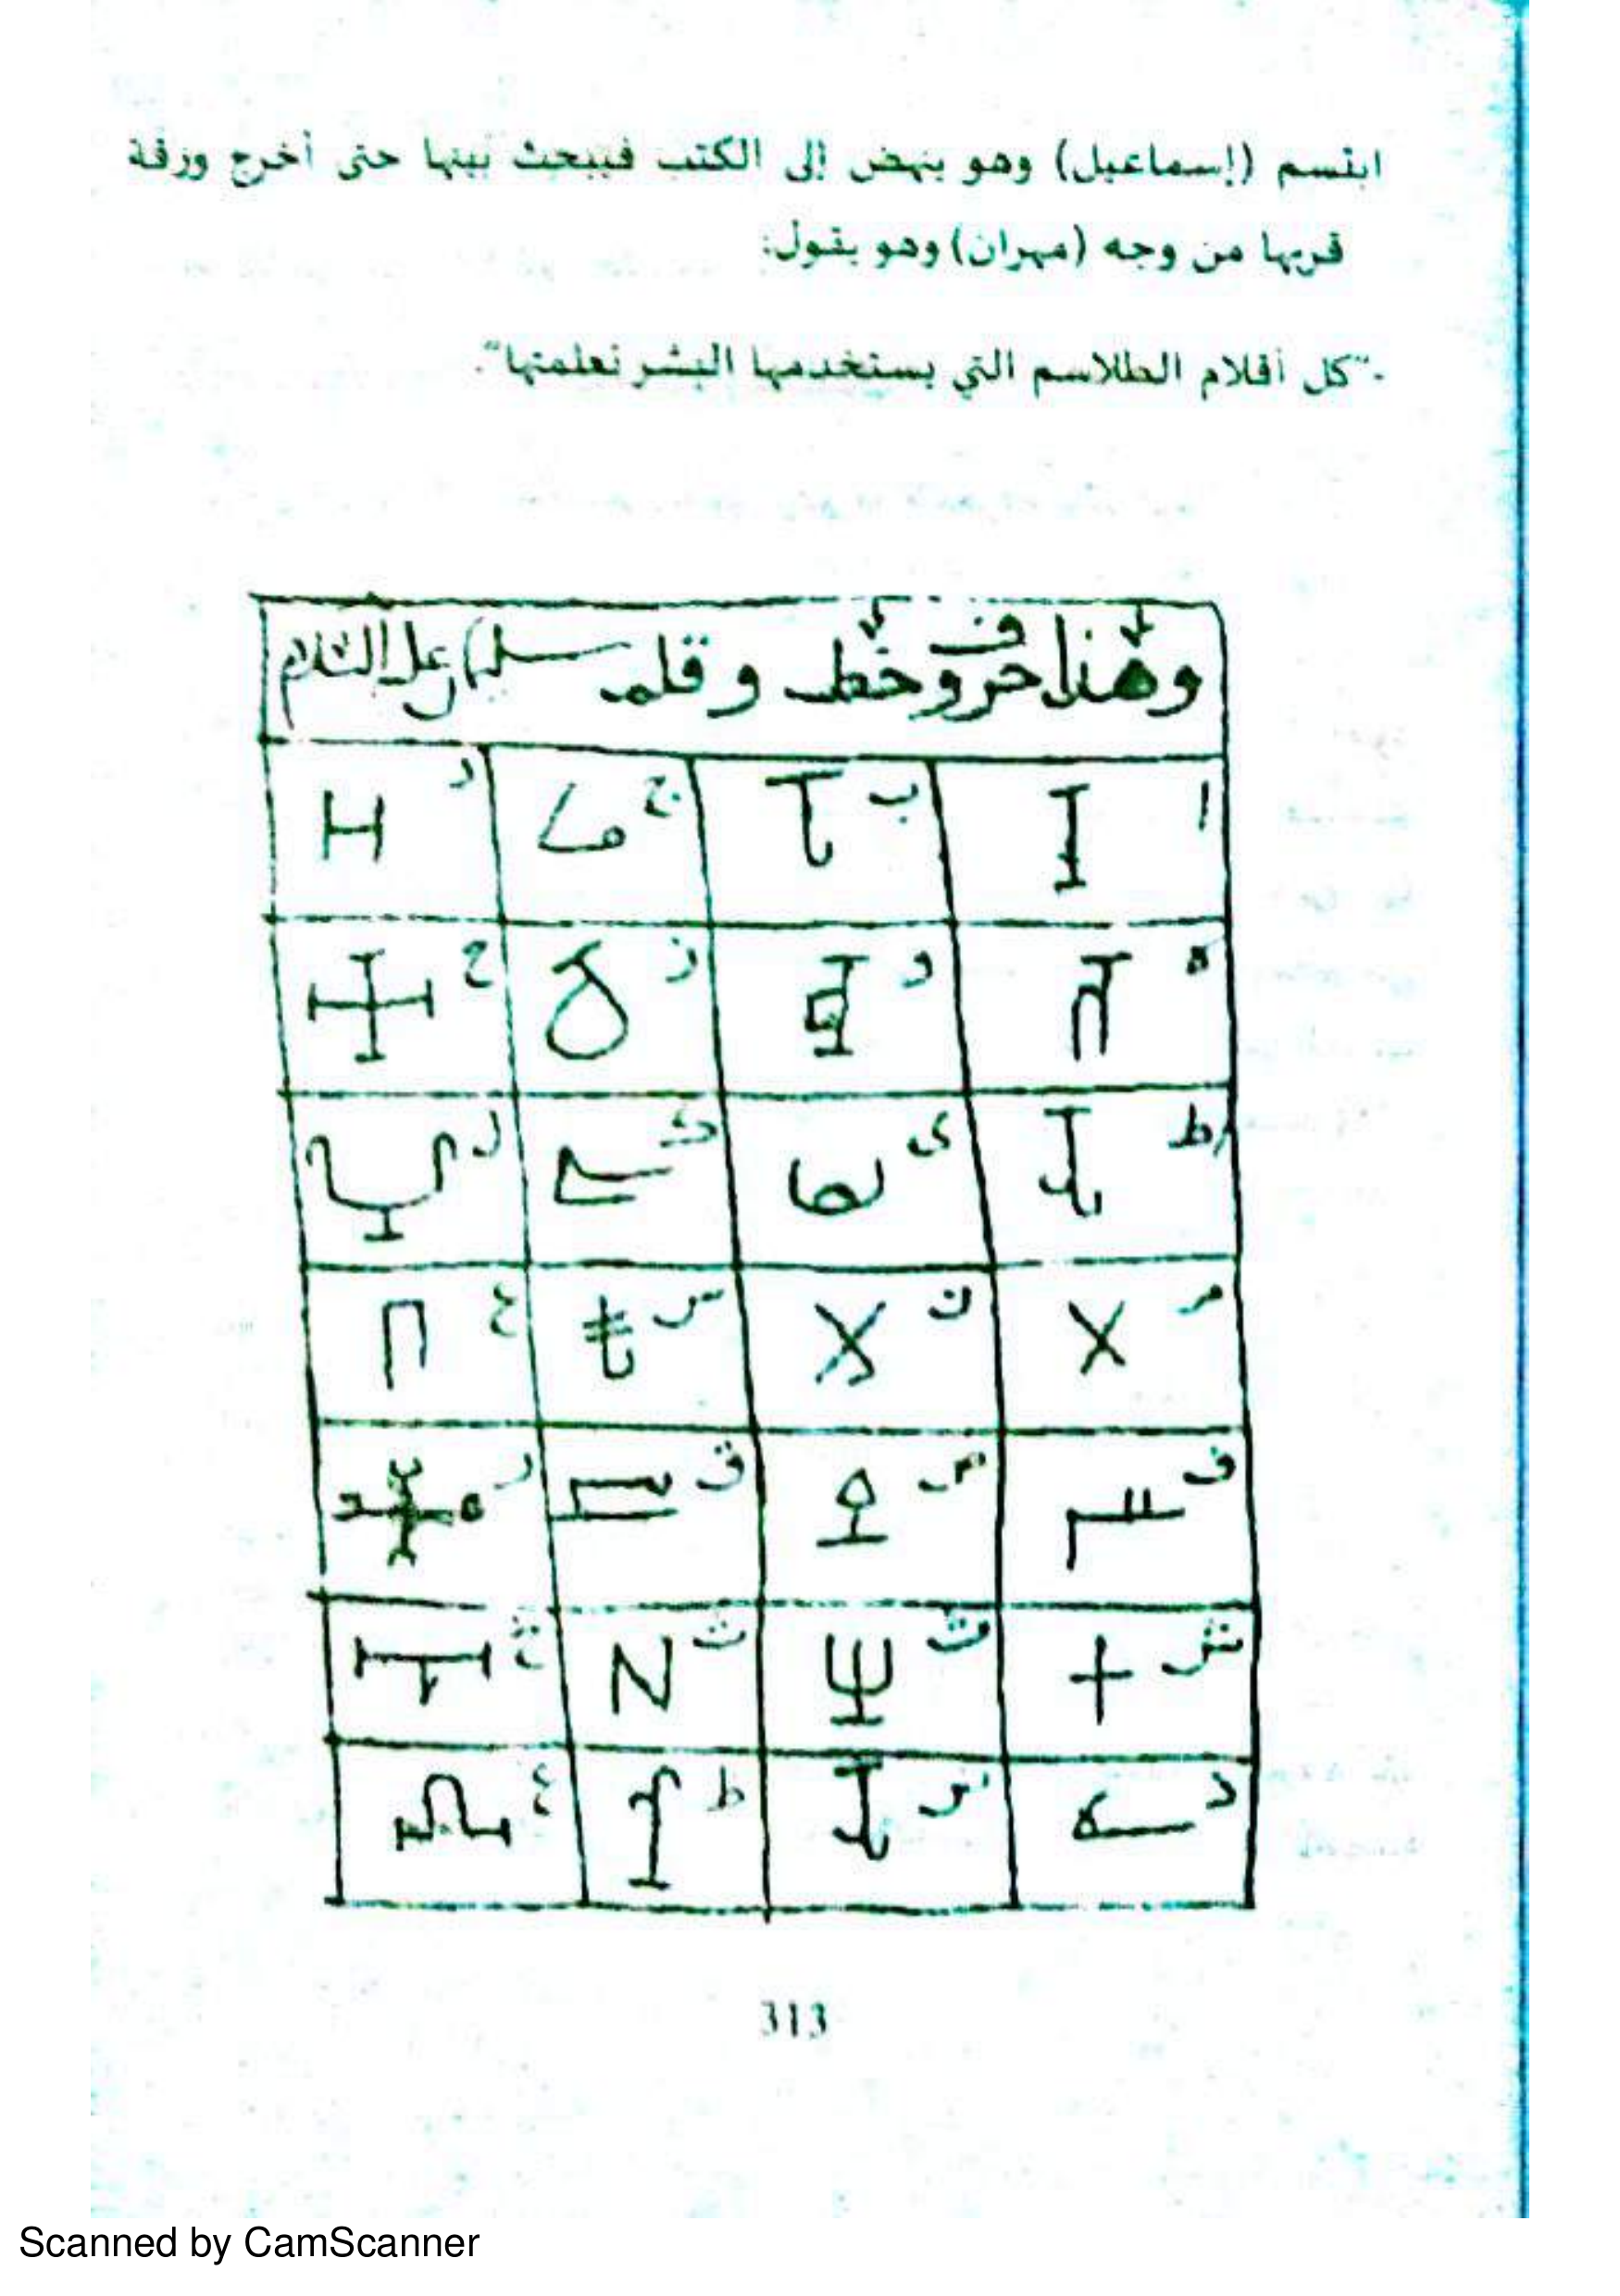 ابتسم (إسماعيل) وهو ينهض إلى الكتب فيبحث بينها حتى أخرج ورقة
قربها من وجه (مهران) وهو يقول:
-"كل أقلام الطلاسم التي يستخدمها البشر تعلمتها".
وهذا حروف خط وقلم سليمان عليه السلام
ا ب ج د
ه و ز ح
ط ى ك ل
م ن س ع
ف ص ق ر
ش ت ث خ
ذ ض ظ غ
313
Scanned by CamScanner